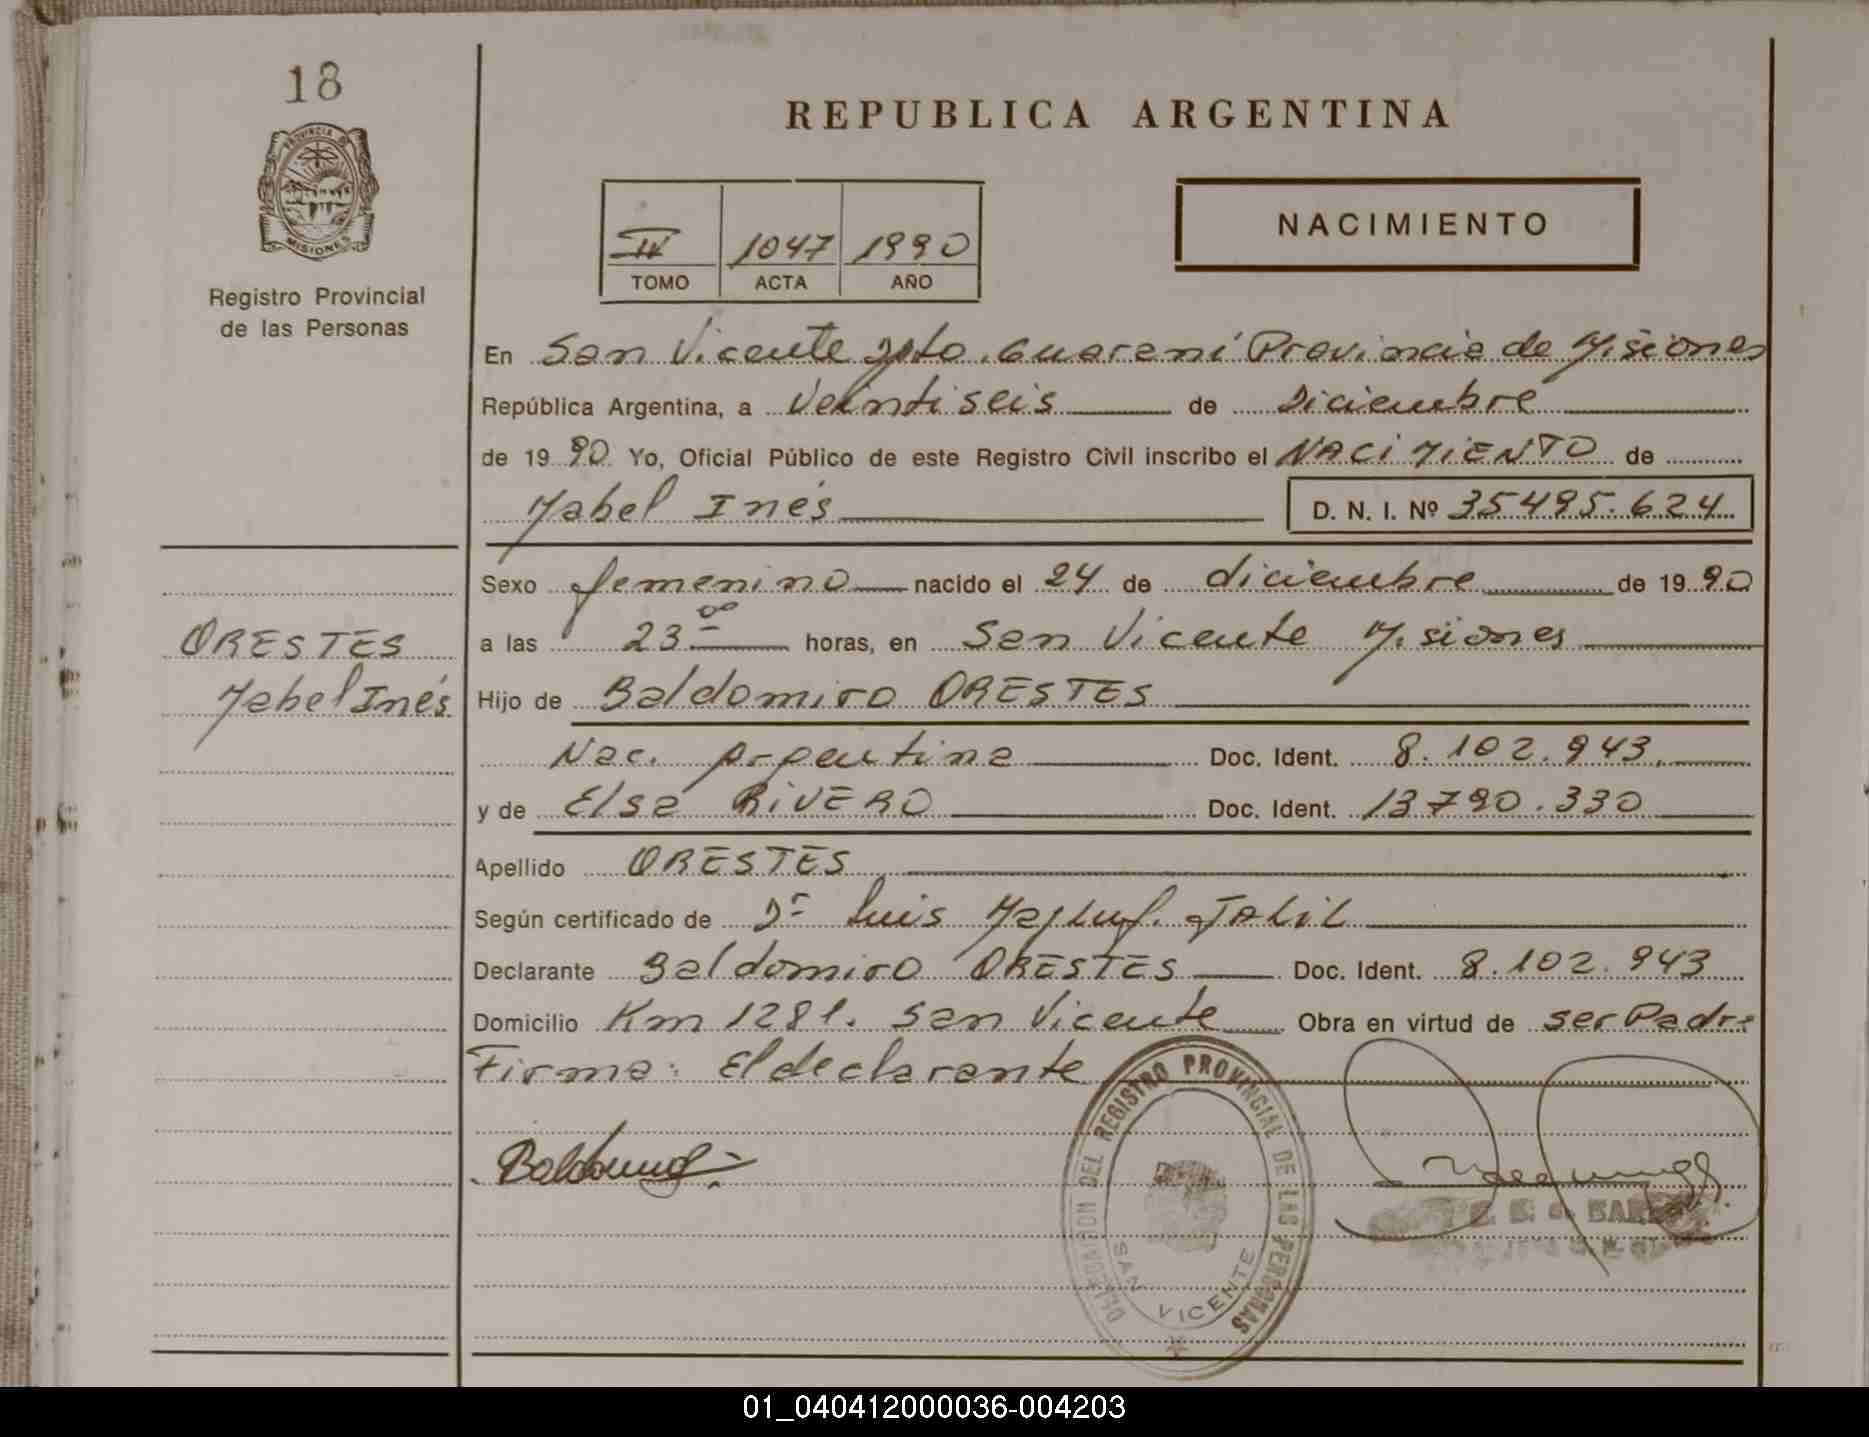 18
PROVINCIA DE
MISIONES
Registro Provincial
de las Personas
REPUBLICA ARGENTINA
IV 1047 1990
TOMO ACTA AÑO
NACIMIENTO
En San Vicente Dpto. Guaraní Provincia de Misiones
República Argentina, a Veintiseis de Diciembre
de 1990 Yo, Oficial Público de este Registro Civil inscribo el NACIMIENTO de
Mabel Inés D. N. I. Nº 35495.624
Sexo femenino nacido el 24 de diciembre de 1990
a las 23 00 horas, en San Vicente Misiones
ORESTES
Mabel Inés
Hijo de Baldomiro ORESTES
Nac. Argentina Doc. Ident. 8.102.943.
y de Elsa RIVERO Doc. Ident. 13790.330
Apellido ORESTES
Según certificado de Dr Luis
Declarante Baldomiro ORESTES Doc. Ident. 8.102.943
Domicilio Km 1281. San Vicente Obra en virtud de ser Padre
Firma: El declarante
DELEGACION DEL REGISTRO PROVINCIAL DE LAS PERSONAS
SAN VICENTE
01_040412000036-004203